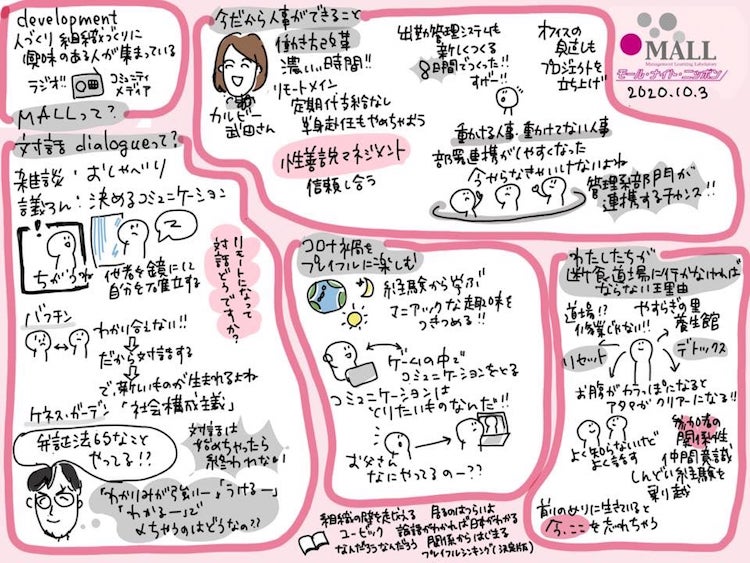 development
人づくり組織づくりに
興味のある人が集まっている
ラジオ!!
コミュニティ
メディア
MALLって?
今だから人事ができること
働き方改革
濃いぃ時間!!
リモートメイン
定期代支給なし
単身赴任もやめちゃおう
カルビー
武田さん
性善説マネジメント
信頼し合う
出勤管理システムも
新しくつくる
8日間でつくった!!
すげー!!
オフィスの
見直しも
プロジェクトを
立ち上げ
MALL
Management Learning Laboratory
モール・ナイト・ニッポン
2020.10.3
動ける人事・動けてない人事
部署連携がしやすくなった
今やらなきゃいけないよね
管理系部門が
連携するチャンス!!
対話 dialogueって?
雑談・おしゃべり
議ろん:決めるコミュニケーション
!
ちがうね
他者を鏡にして
自分を確立する
バフチン
わかり合えない!!
だから対話する
で、新しいものが生まれるよね
ケネス・ガーゲン「社会構成主義」
弁証法的なこと
やってる!?
対話は
始めちゃったら
終われない
「わかりみが強いー」「うけるー」
「わかるー」で
〆ちゃうのはどうなの??
リモートになって
対話どうですか?
コロナ禍を
プレイフルに楽しむ
経験から学ぶ
マニアックな趣味を
つきつめる!!
ゲームの中で
コミュニケーションをとる
コミュニケーションは
とりたいものなんだ!!
お父さん
なにやってるのー??
わたしたちが
断食道場に行かなければ
ならない理由
道場!?
修業じゃない!!
やすらぎの里
養生館
リセット
デトックス
お腹がカラッぽになると
アタマがクリアーになる!!
よく知らないけど
よく話す
参加者の
関係性
仲間意識
しんどい経験を
乗り越
前のめりに生きていると
今、ここを忘れちゃう
組織の壁を越える
ユービック
なんだろうなんだろう
居るのはつらいよ
論語がわかれば日本がわかる
関係からはじまる
プレイフルシンキング(決定版)